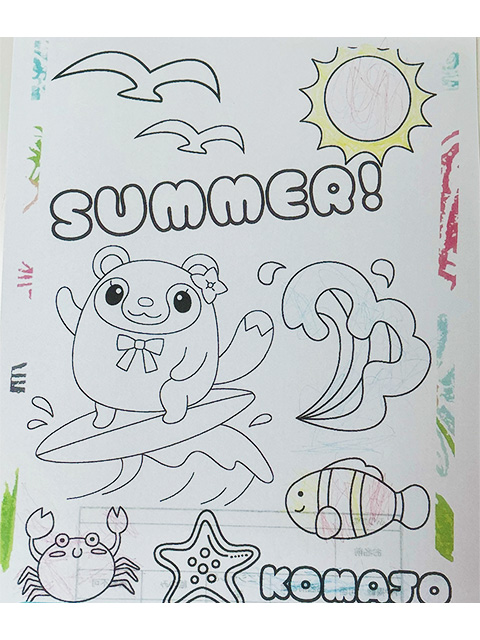 SUMMER!
KOMAJO